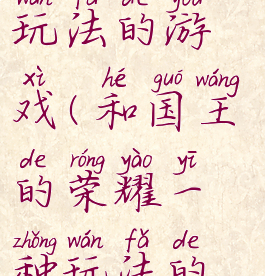 wán fǎ de yóu
玩法的游
xì hé guó wáng
戏(和国王
de róng yào yī
的荣耀一
zhǒng wán fǎ de
种玩法的